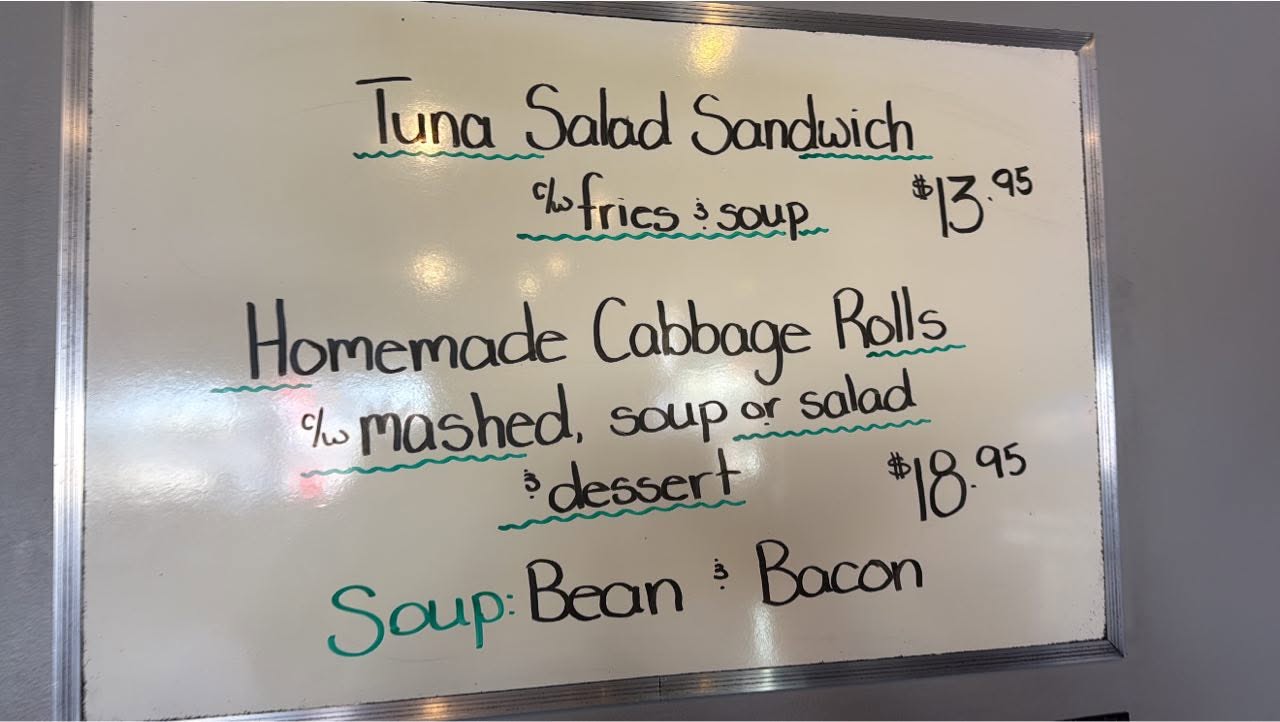 Tuna Salad Sandwich
c/w fries & soup $13.95
Homemade Cabbage Rolls
c/w mashed, soup or salad
& dessert $18.95
Soup: Bean & Bacon